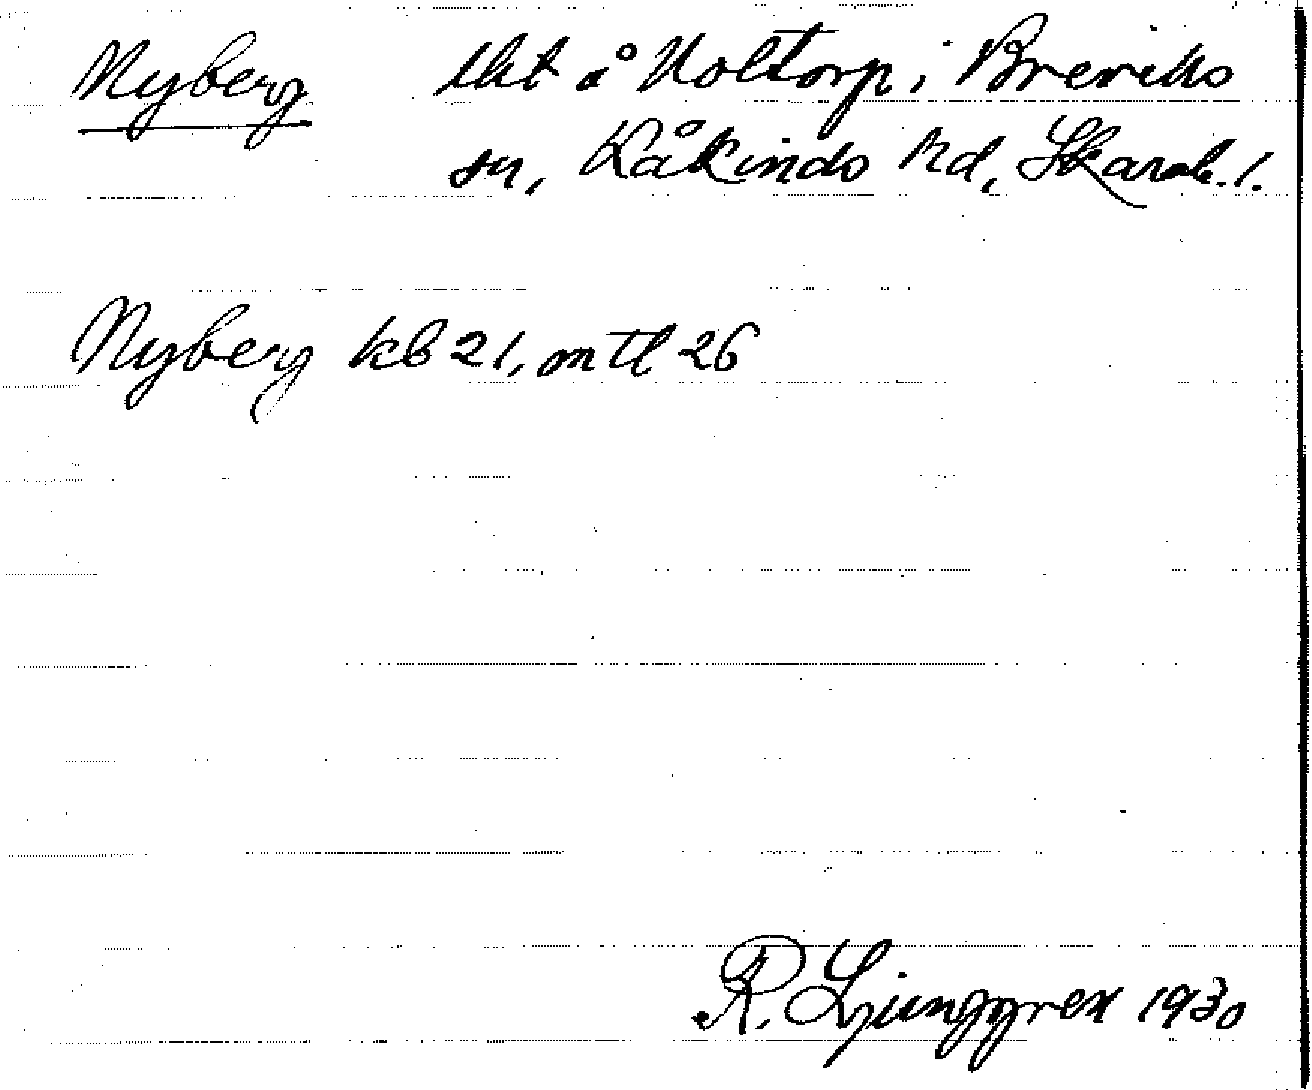 Nyberg lht å Noltorp i Breviks
sn, Kåkinds hd, Skarab. l.
Nyberg kb 21, mtl 26
R. Ljunggren 1930